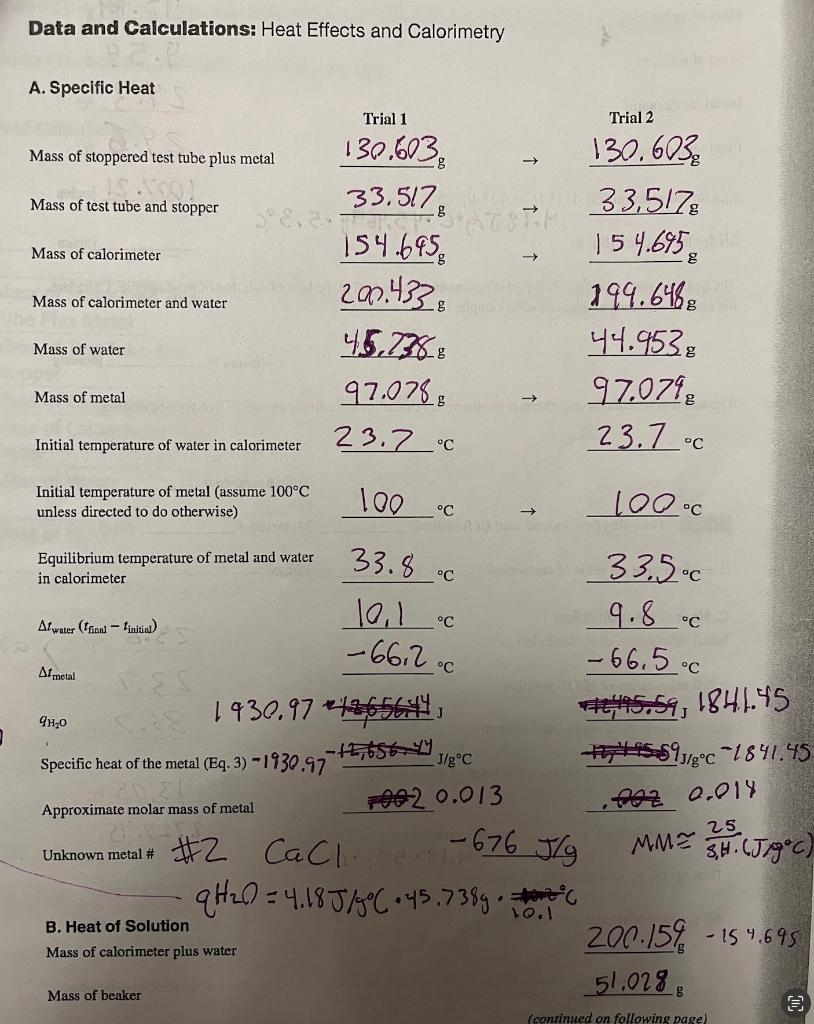 Data and Calculations: Heat Effects and Calorimetry
A. Specific Heat
Trial 1 Trial 2
Mass of stoppered test tube plus metal 130.603 g → 130.603 g
Mass of test tube and stopper 33.517 g → 33.517 g
Mass of calorimeter 154.695 g → 154.695 g
Mass of calorimeter and water 200.433 g 199.648 g
Mass of water 45.738 g 44.953 g
Mass of metal 97.078 g → 97.079 g
Initial temperature of water in calorimeter 23.7 °C 23.7 °C
Initial temperature of metal (assume 100°C
unless directed to do otherwise) 100 °C → 100 °C
Equilibrium temperature of metal and water
in calorimeter 33.8 °C 33.5 °C
Δt water (t final − t initial) 10.1 °C 9.8 °C
Δt metal -66.2 °C -66.5 °C
qH₂O 1930.97 J J 1841.45
Specific heat of the metal (Eq. 3) -1930.97 J/g°C J/g°C -1841.45
Approximate molar mass of metal 0.013 0.014
Unknown metal # #2 CaCl -676 J/g MM≈ 25/S,H.(J/g°C)
qH₂O = 4.18 J/g°C • 45.738g • 10.1 °C
B. Heat of Solution
Mass of calorimeter plus water 200.159 g - 154.695
Mass of beaker 51.028 g
(continued on following page)